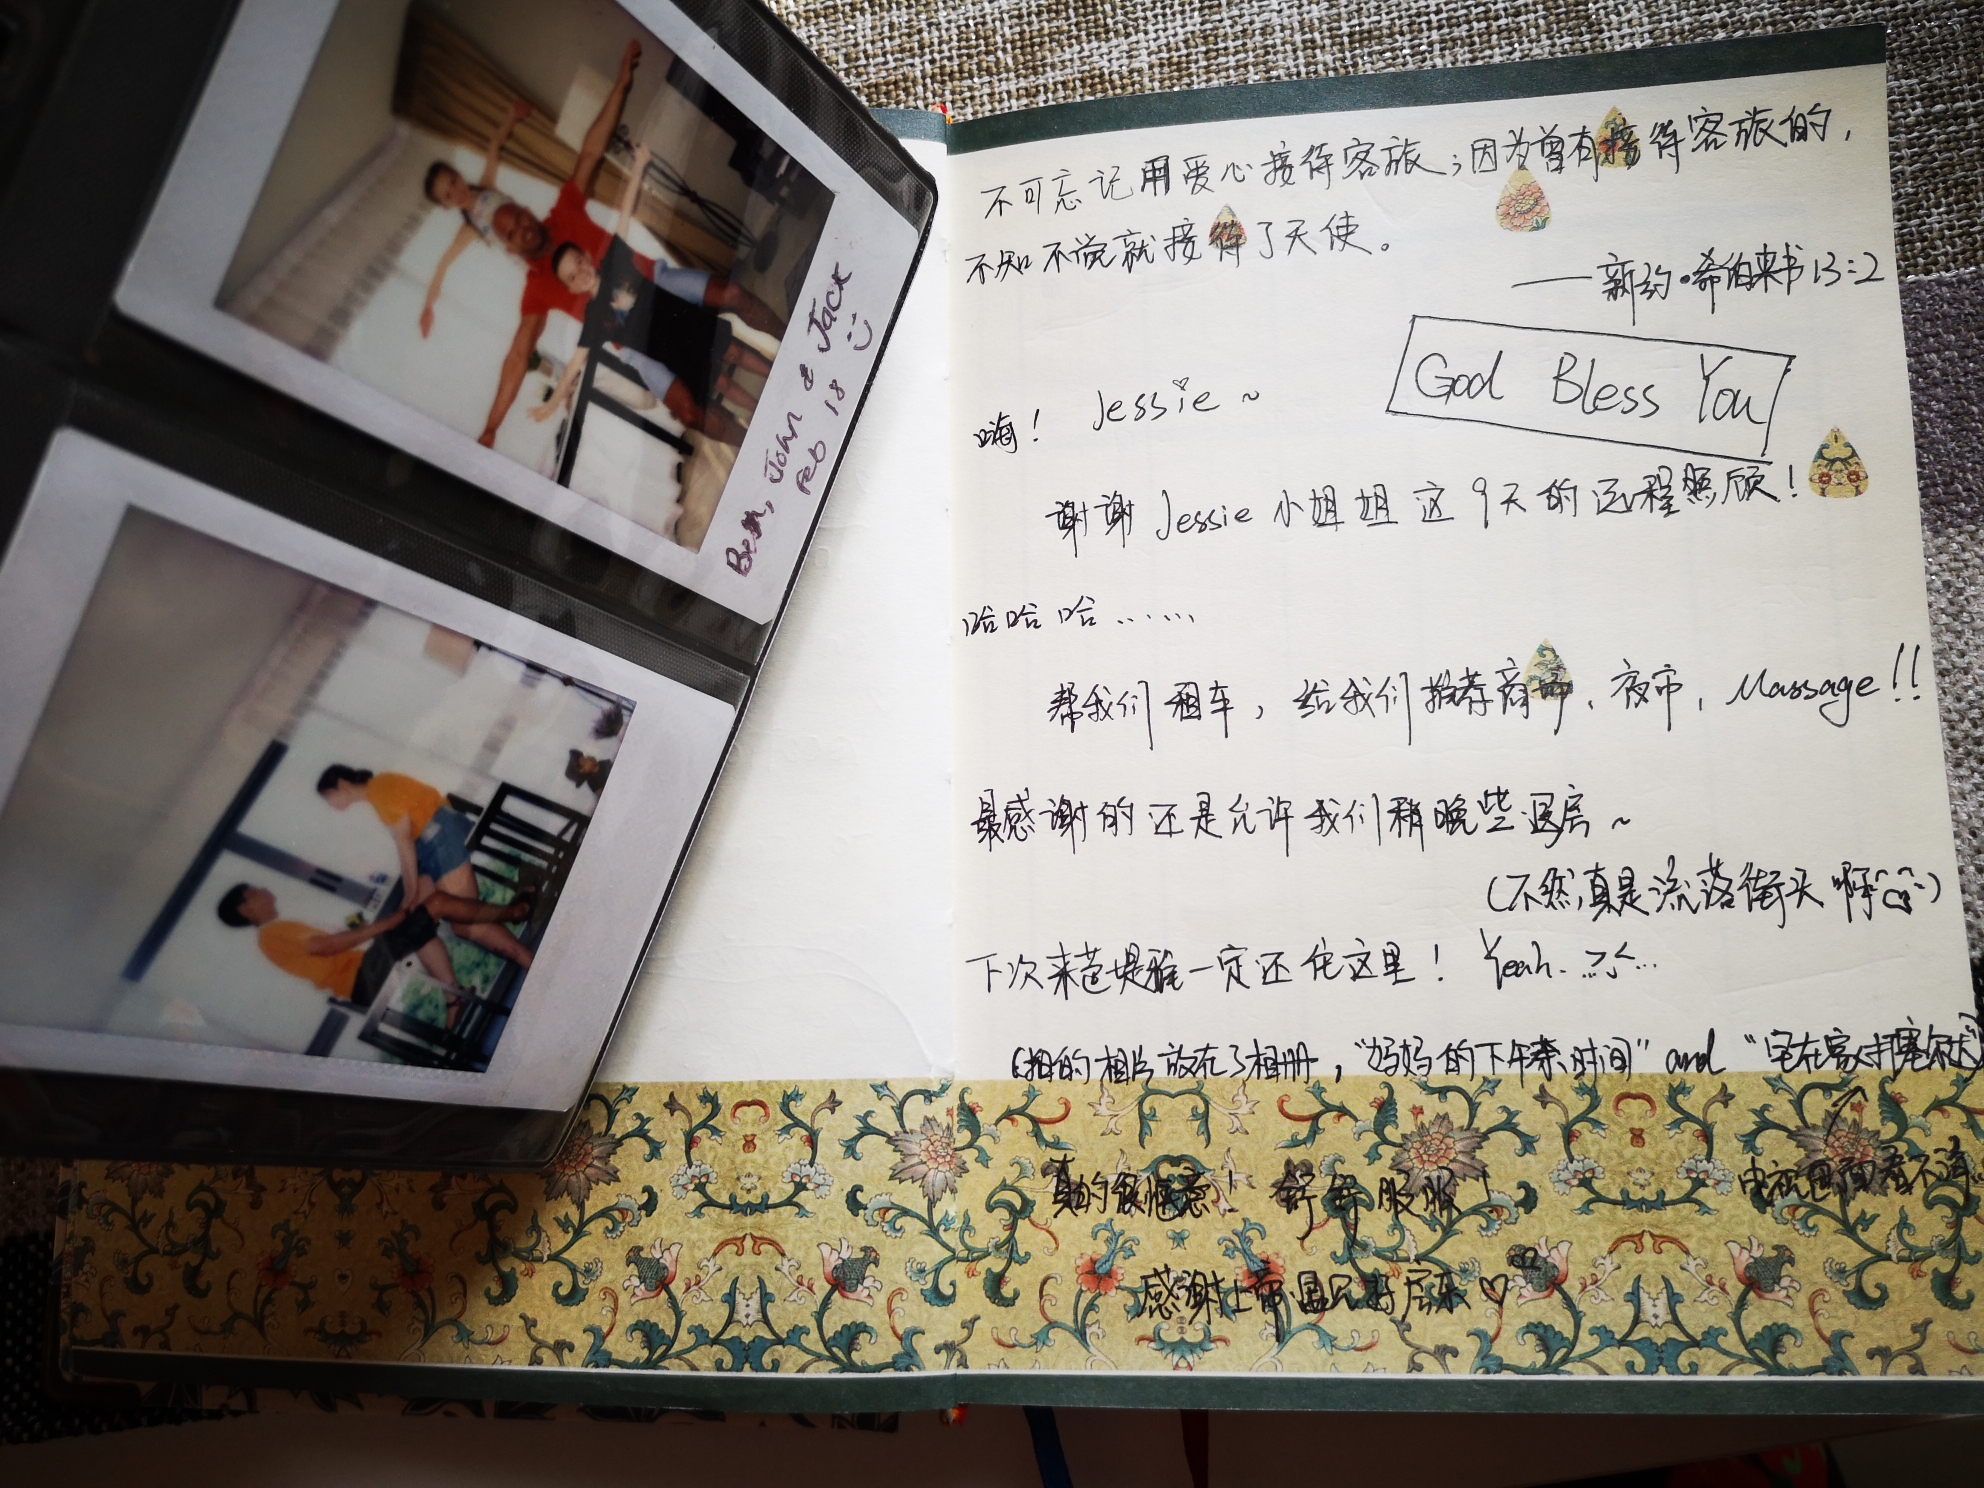 Beth, John & Jack
Feb 18
不可忘记用爱心接待客旅；因为曾有接待客旅的，
不知不觉就接待了天使。
——新约·希伯来书13:2
God Bless You
嗨！ Jessie ~
谢谢 Jessie 小姐姐这9天的远程照顾！
哈哈哈……
帮我们租车，给我们推荐商场、夜市，Massage!!
最感谢的还是允许我们稍晚些退房~
(不然，真是流落街头啊
下次来芭堤雅一定还住这里！ Yeah.
(拍的相片放在了相册，“妈妈的下午茶时间” and “宅在家
真的很惬意！舒舒服服！
感谢上帝 遇见好房东♡